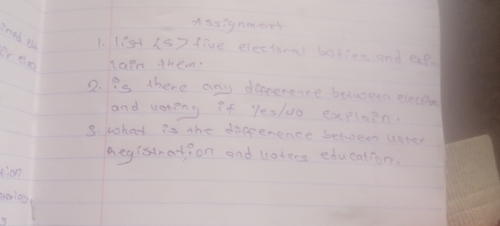 Assignment
1. list (5) five electoral bodies and exp
lain them.
2. is there any difference between election
and voting if Yes/No explain.
3. what is the difference between voter
Registration and voters education.